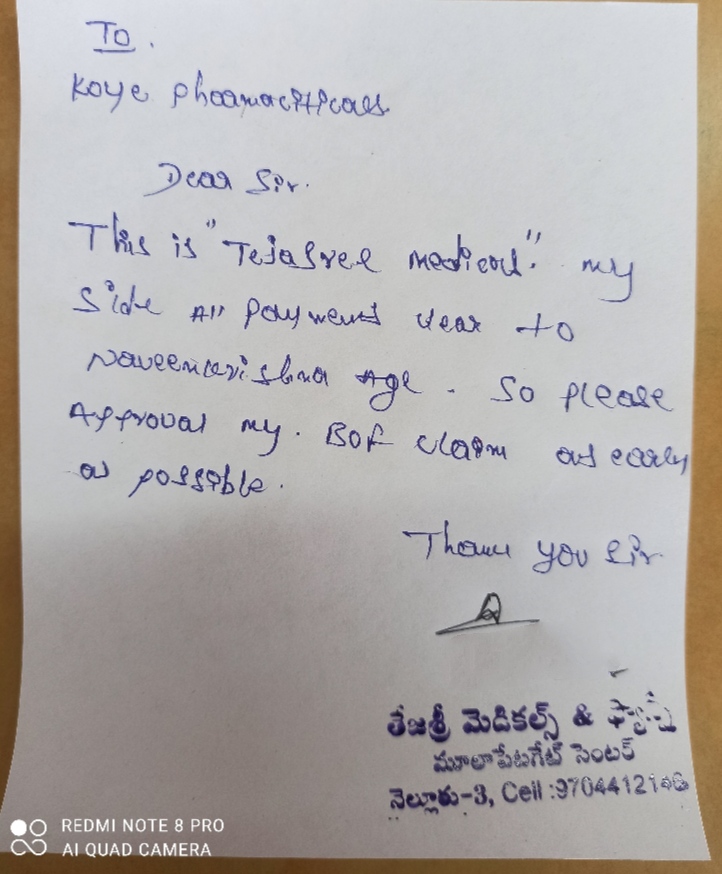 To.
Koye Pharmaciticals
Dear Sir.
This is "Tejasree medical". my
side All Payments clear to
Naveenkrishna Age. So please
Approval my. BOF claim as early
as possible.
Thank you Sir
తేజశ్రీ మెడికల్స్ & ఫ్యాన్సీ
మూలాపేటగేట్ సెంటర్
నెల్లూరు-3, Cell :9704412146
REDMI NOTE 8 PRO
AI QUAD CAMERA